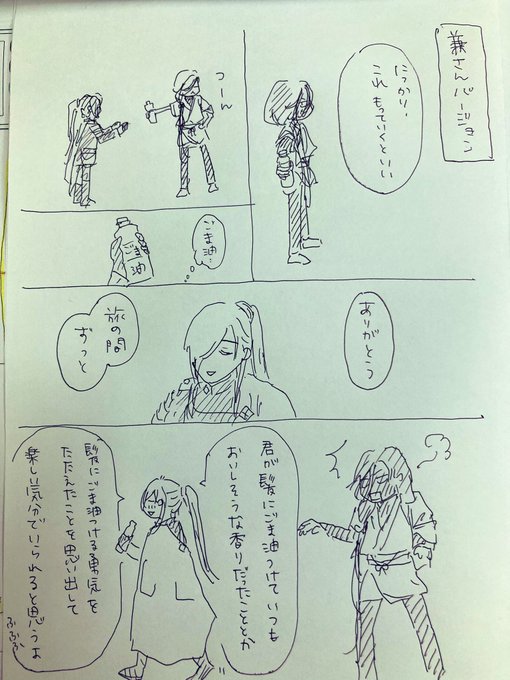 兼さんバージョン
にっかり、
これもっていくといい
つーん
ごま油…
ごま油
ありがとう
旅の間
ずっと
君が髪にごま油つけていつも
おいしそうな香りだったこととか
髪にごま油つける勇気を
たたえたことを思い出して
楽しい気分でいられると思うよ
ふふふ